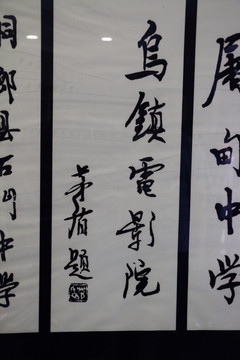 屠甸中学
烏鎮電影院
茅盾題
桐鄉县石门中学